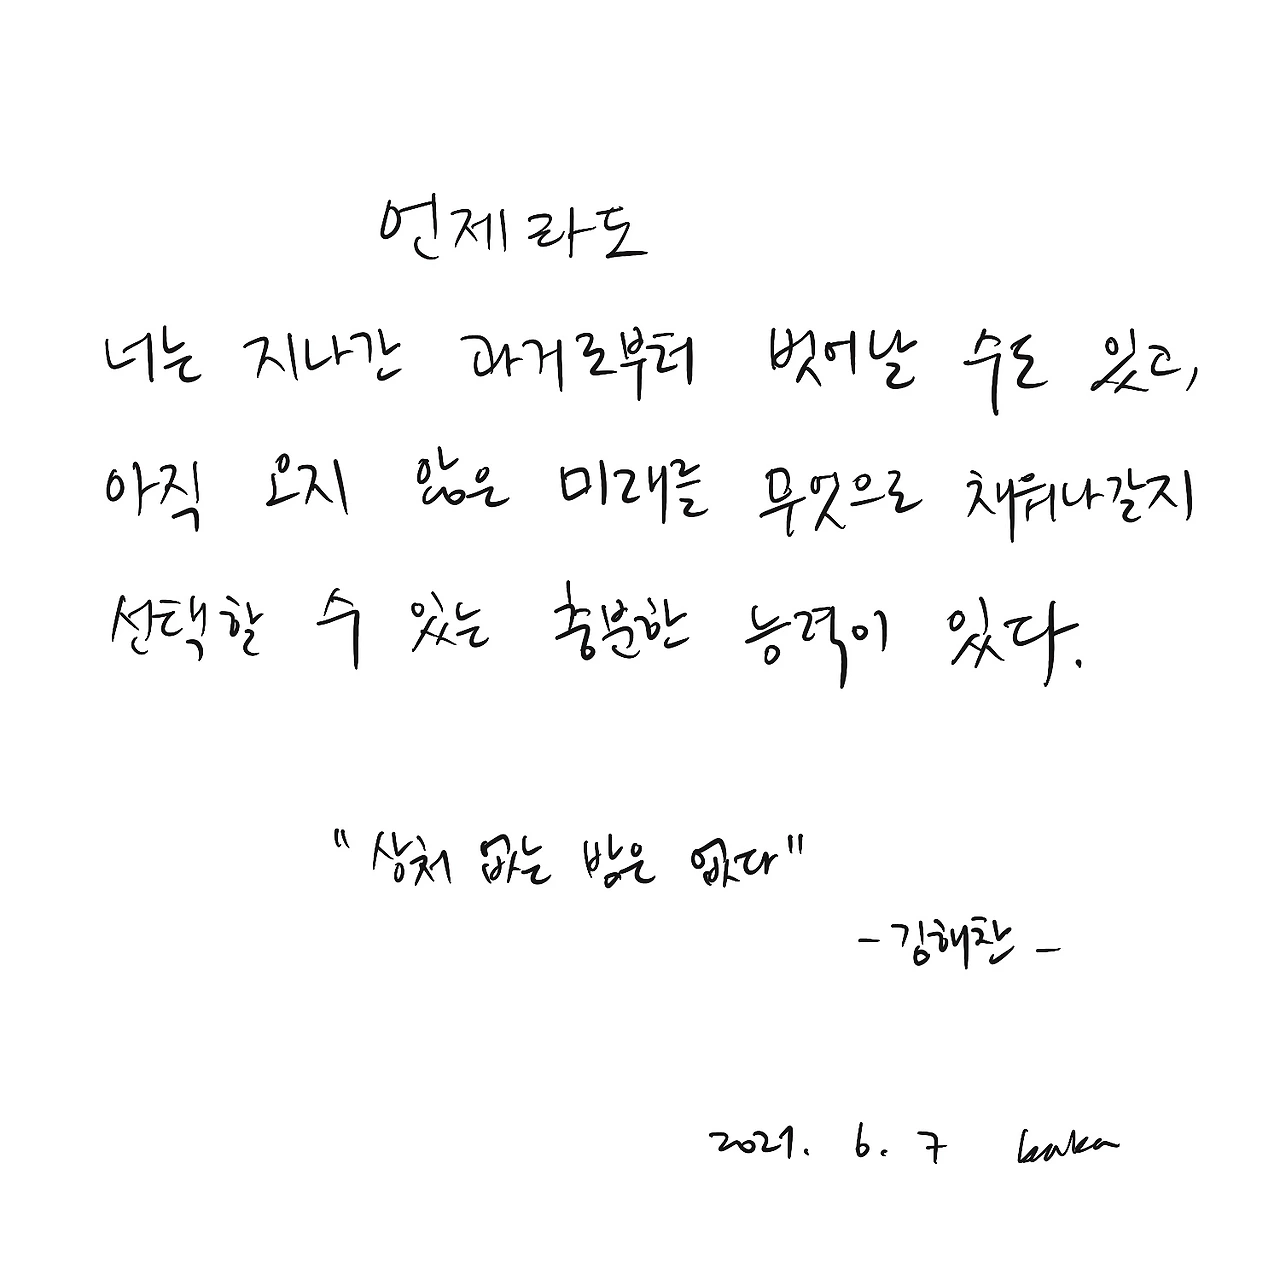 언제라도
너는 지나간 과거로부터 벗어날 수도 있고,
아직 오지 않은 미래를 무엇으로 채워나갈지
선택할 수 있는 충분한 능력이 있다.
"상처 없는 밤은 없다"
- 김해찬 -
2021. 6. 7 kaka